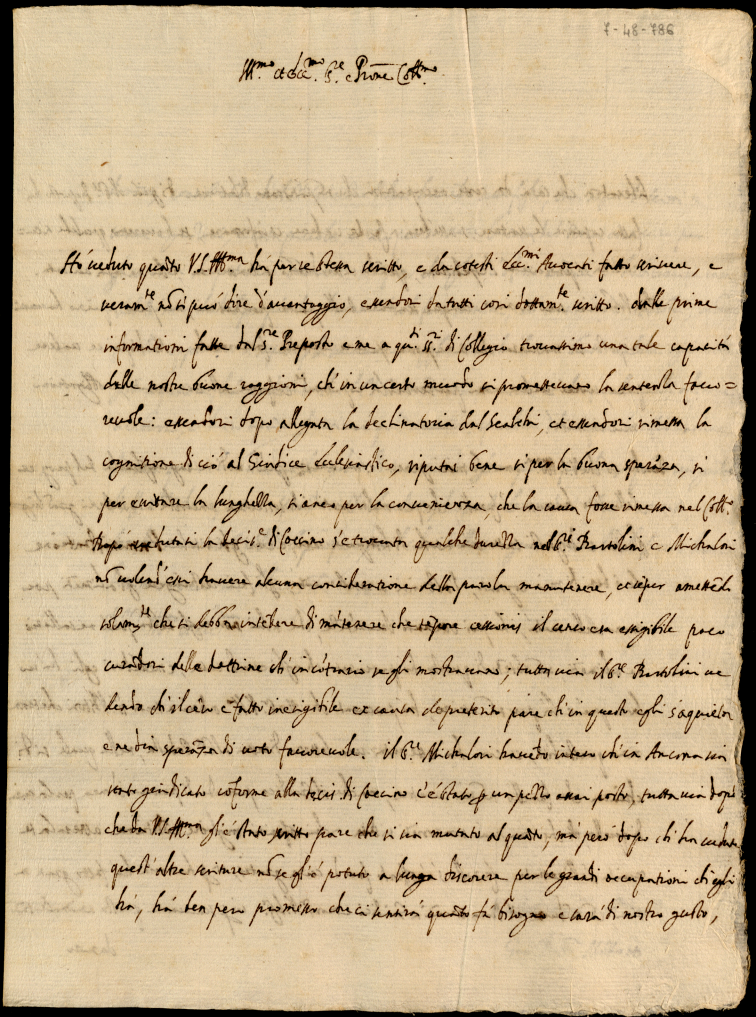 7-48-786
Ill.mo et Ecc.mo S.re e Prōne Coll.mo
Hò ueduto quāto V.S. Ill.ma hà per se stessa scritto, e da cotesti Ecc.mi Auocati fatto scriuere, e
ueram.te nō si può dire d'auantaggio, essendosi da tutti così dottam.te scritto. dalle prime
informationi fatte dal S.re Preposto e me a qu.ti SS.ri di Collegio trouassimo una tale capacità
delle nostre buone raggioni, ch'in un certo modo si prometteuano la sentenza fauo=
reuole: essendosi dopo allegata la declinatoria dal Scalchi, et essendosi rimessa la
cognitione di ciò al Giudice Eclesiastico, riputai bene si per la buona sperāza, si
per euitare la lunghezza, si anco per la conuenienza che la causa fosse rimessa nel Coll.o
Dopò uedutasi la decis.e di Coccino s'è trouata qualche durezza nel S.re Bartolini e Michalori
nō uolend' essi hauere alcuna consideratione della parola manutenere, et
solam.te che si debba intēdere di mātenere che tēpore cessionis il censo era essigibile poco
curandosi delle dottrine ch'in cōtrario se gli mostrauano; tutta uia il S.re Bartolini ue
dendo ch'il cēso è fatto inesigibile ex causa de preterito pare ch'in questo egli s'aquieta
e ne dia sperāza di uoto fauoreuole. il S.re Michalori hauēdo inteso ch'in Ancona sia
stato giudicato cōforme alla decis. di Coccino c'è stato p un pezzo assai posto, tutta uia dopò
che da V.S. Ill.ma gl'è stato scritto pare che si sia mutato alquāto, mà però dopo ch'hà uedute
quest'altre scritture nō se gli è potuto a lungo discorere per le grandi occupationi ch'egli
hà, hà ben però promesso che ci sentirà quāto fà bisogno e sarà di nostro gusto,